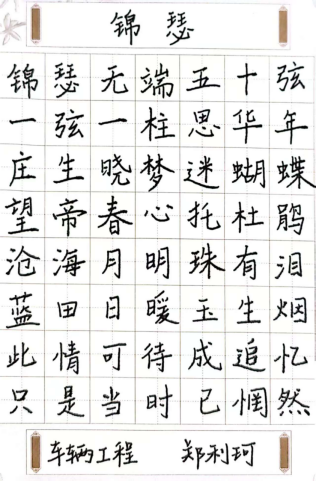 锦瑟
锦瑟无端五十弦
一弦一柱思华年
庄生晓梦迷蝴蝶
望帝春心托杜鹃
沧海月明珠有泪
蓝田日暖玉生烟
此情可待成追忆
只是当时已惘然
车辆工程 郑利珂